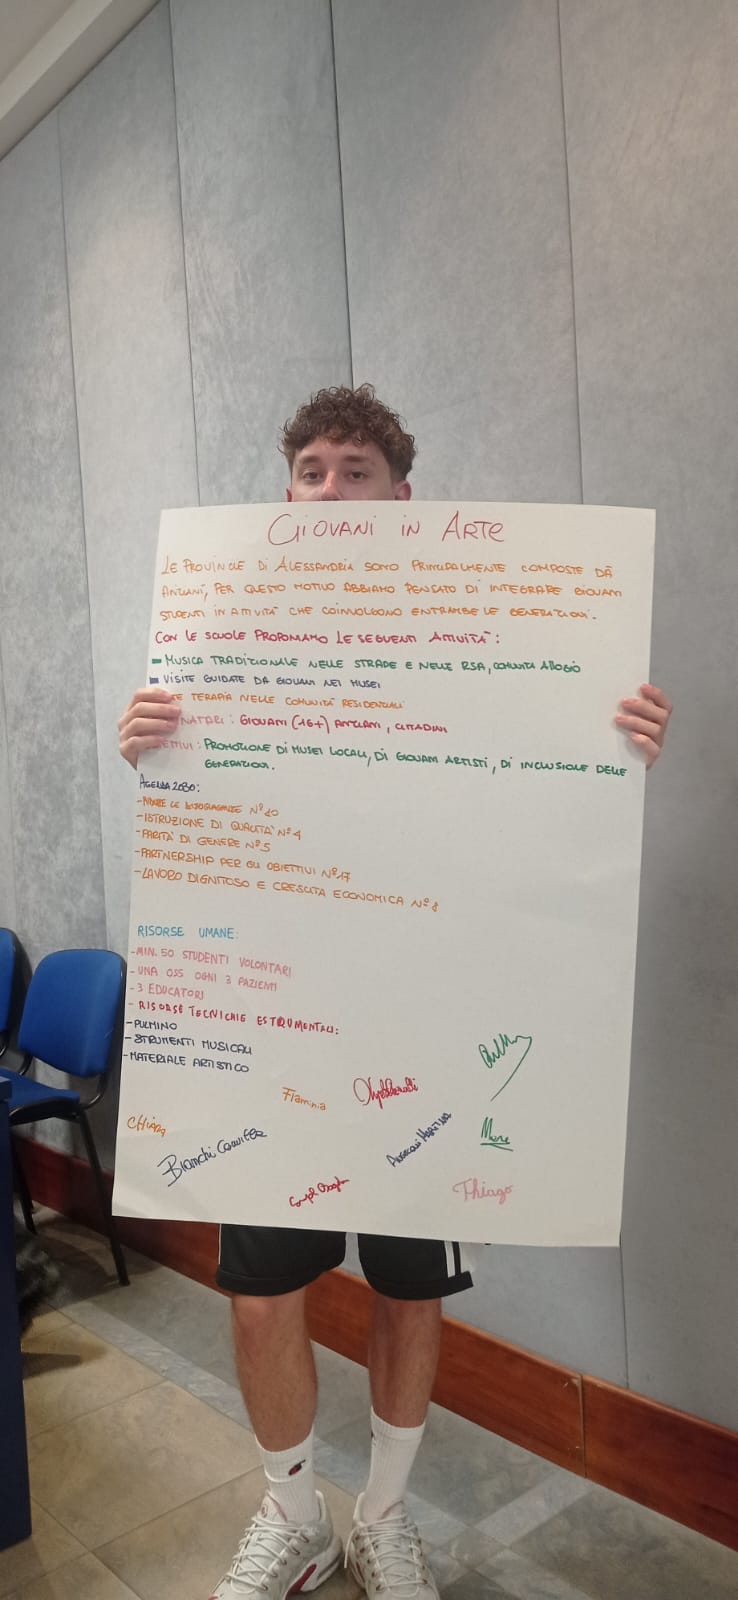 GIOVANI IN ARTE
LE PROVINCIE DI ALESSANDRIA SONO PRINCIPALMENTE COMPOSTE DA
ANZIANI, PER QUESTO MOTIVO ABBIAMO PENSATO DI INTEGRARE GIOVANI
STUDENTI IN ATTIVITÀ CHE COINVOLGONO ENTRAMBE LE GENERAZIONI.
CON LE SCUOLE PROPONIAMO LE SEGUENTI ATTIVITÀ:
- MUSICA TRADIZIONALE NELLE STRADE E NELLE RSA, COMUNITÀ ALLOGIO
- VISITE GUIDATE DA GIOVANI NEI MUSEI
TE TERAPIA NELLE COMUNITÀ RESIDENZIALI
NATARI: GIOVANI (16+) ANZIANI, CITTADINI
ETTIVI: PROMOZIONE DI MUSEI LOCALI, DI GIOVANI ARTISTI, DI INCLUSIONE DELLE
GENERAZIONI.
AGENDA 2030:
- RIDURRE LE DISUGUAGLIANZE N°10
- ISTRUZIONE DI QUALITÀ N°4
- PARITÀ DI GENERE N°5
- PARTNERSHIP PER GLI OBIETTIVI N°17
- LAVORO DIGNITOSO E CRESCITA ECONOMICA N°8
RISORSE UMANE:
- MIN. 50 STUDENTI VOLONTARI
- UNA OSS OGNI 3 PAZIENTI
- 3 EDUCATORI
- RISORSE TECNICHE E STRUMENTALI:
- PULMINO
- STRUMENTI MUSICALI
- MATERIALE ARTISTICO
Flaminia
CHIARA
Bianchi Camilla
MARTINA
Thiago